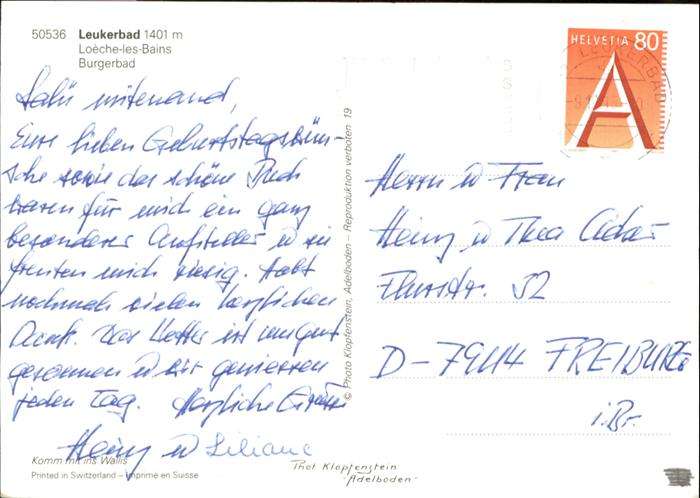 50536 Leukerbad 1401 m
Loèche-les-Bains
Burgerbad
HELVETIA 80
A
LEUKERBAD
Salü mitenand,
Eure lieben Geburtstagswün-
sche sowie das schöne Buch
waren für mich ein ganz
besonderer Aufsteller u
freuten mich riesig. Habt
nochmals vielen herzlichen
Dank. Das Wetter ist uns gut
gesonnen u wir geniessen
jeden Tag. Herzliche Grüsse
Heinz u Liliane
Herrn u Frau
Heinz u Thea
32
D-79114 FREIBURG
i.Br.
© Photo Klopfenstein, Adelboden – Reproduktion verboten 19
Komm mit ins Wallis
Printed in Switzerland – Imprimé en Suisse
Phot Klopfenstein
"Adelboden"